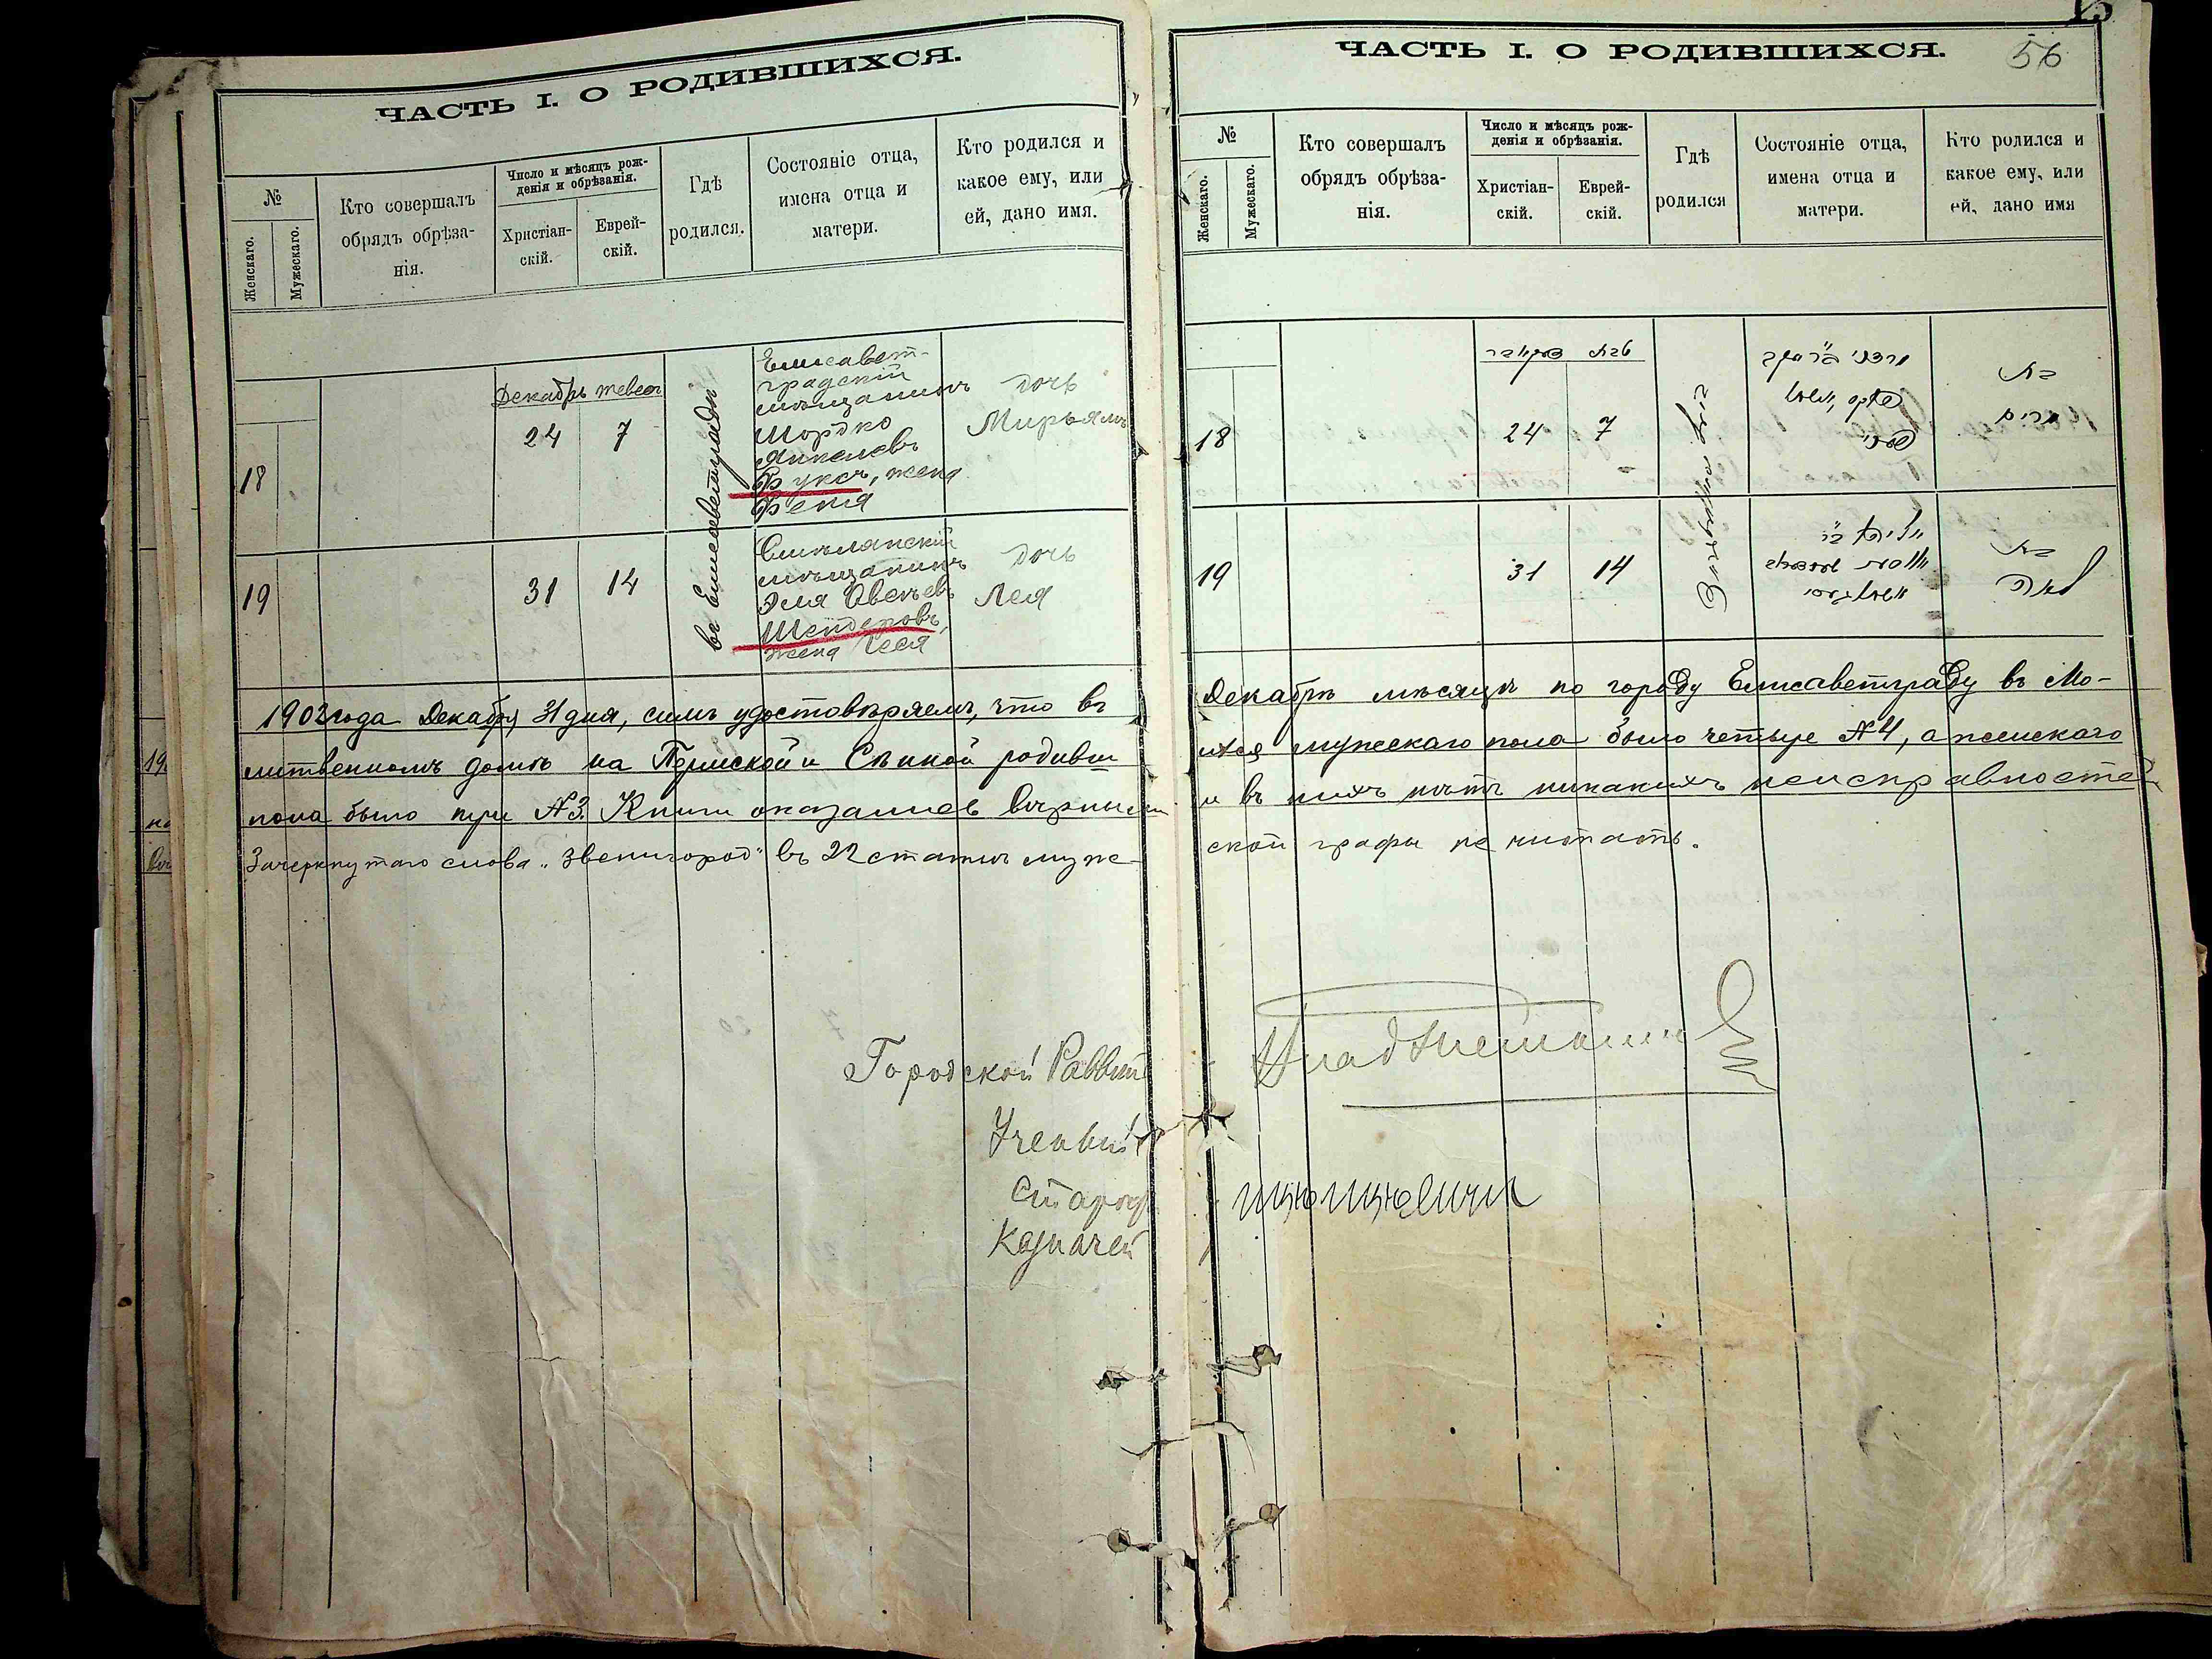 ЧАСТЬ I. О РОДИВШИХСЯ.
№
Женскаго.
Мужескаго.
Кто совершалъ
обрядъ обрѣза-
нія.
Число и мѣсяцъ рож-
денія и обрѣзанія.
Христіан-
скій.
Еврей-
скій.
Гдѣ
родился.
Состояніе отца,
имена отца и
матери.
Кто родился и
какое ему, или
ей, дано имя.
Декабрь Тевесъ
18
24
7
въ Елисаветградѣ
Елисавет-
градскій
мѣщанинъ
Мордко
Янкелевъ
Фуксъ, жена
Феня
дочь
Мирьямъ
19
31
14
мѣщанинъ
Эля
Шендеровъ,
жена
дочь
Лея
1902 года Декабря 31 дня, симъ удостовѣряемъ, что въ
литвенномъ домѣ на Пермской и Сѣнной родивши
пола было три № 3. Книги оказались вѣрными
Зачеркнутаго слова „Звенигород" въ 22 статьи муже-
Городской Раввинъ
Ученый
Староста
Казначей
ЧАСТЬ I. О РОДИВШИХСЯ.
56
№
Женскаго.
Мужескаго.
Кто совершалъ
обрядъ обрѣза-
нія.
Число и мѣсяцъ рож-
денія и обрѣзанія.
Христіан-
скій.
Еврей-
скій.
Гдѣ
родился
Состояніе отца,
имена отца и
матери.
Кто родился и
какое ему, или
ей, дано имя
18
24
7
בת
מרים
19
31
14
בת
לאה
Декабрѣ мѣсяцѣ по городу Елисаветграду въ Мо-
ихся мужескаго пола было четыре № 4, а женскаго
и въ нихъ нѣтъ никакихъ неисправностей
ской графы не читать.